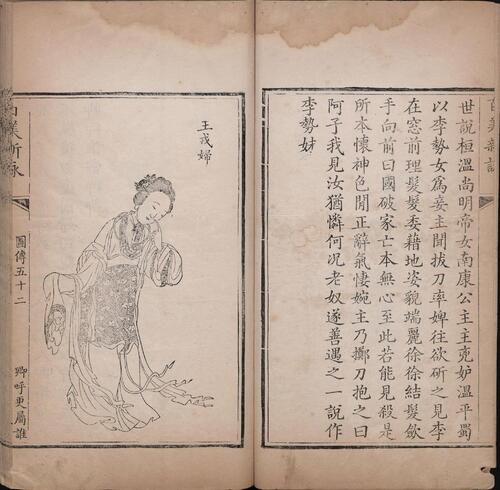 世說桓溫尚明帝女南康公主主兇妒溫平蜀
以李勢女爲妾主聞拔刀率婢往欲斫之見李
在窗前理髮髮委藉地姿貌端麗徐徐結髮斂
手向前曰國破家亡本無心至此若能見殺是
所本懷神色閒正辭氣悽婉主乃擲刀抱之曰
阿子我見汝猶憐何況老奴遂善遇之一說作
李勢妹
王戎婦
百美新詠
圖傳五十二
卿呼更屬誰